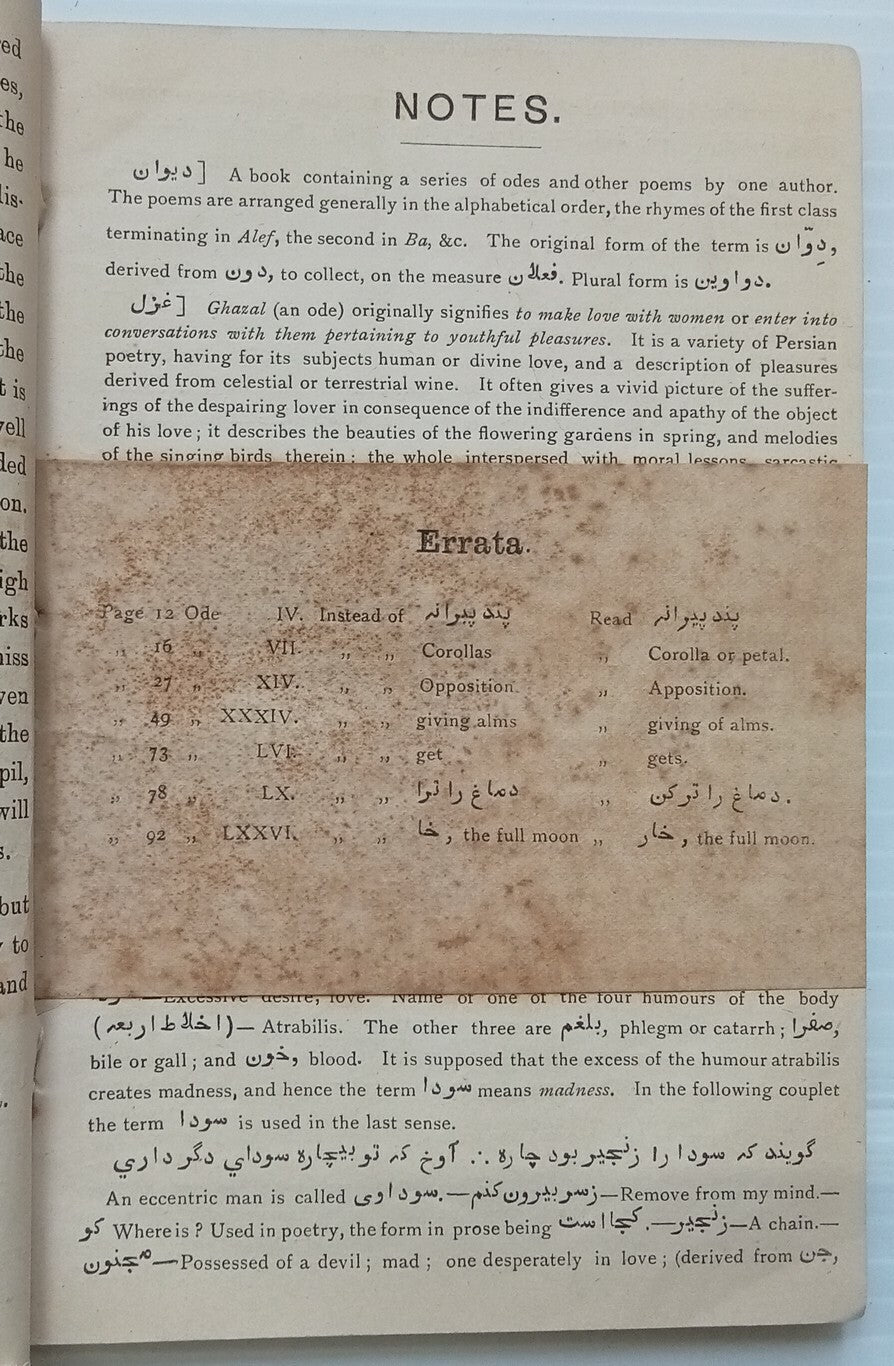 ed
es,
the
he
lis-
ace
the
the
the
t is
vell
ded
on.
the
igh
rks
niss
ven
the
pil,
will
s.
but
to
and
NOTES.
ديوان] A book containing a series of odes and other poems by one author.
The poems are arranged generally in the alphabetical order, the rhymes of the first class
terminating in Alef, the second in Ba, &c. The original form of the term is دِوّان,
derived from دون, to collect, on the measure فعلان. Plural form is دواوين.
غزل] Ghazal (an ode) originally signifies to make love with women or enter into
conversations with them pertaining to youthful pleasures. It is a variety of Persian
poetry, having for its subjects human or divine love, and a description of pleasures
derived from celestial or terrestrial wine. It often gives a vivid picture of the suffer-
ings of the despairing lover in consequence of the indifference and apathy of the object
of his love; it describes the beauties of the flowering gardens in spring, and melodies
of the singing birds therein; the whole interspersed with moral lessons, sarcastic
Errata.
Page 12 Ode IV. Instead of پند پیرانہ Read پند پیرانہ
„ 16 „ VII. „ „ Corollas „ Corolla or petal.
„ 27 „ XIV. „ „ Opposition „ Apposition.
„ 49 „ XXXIV. „ „ giving alms „ giving of alms.
„ 73 „ LVI. „ „ get „ gets.
„ 78 „ LX. „ „ دماغ را ترا „ دماغ را ترکن.
„ 92 „ LXXVI. „ „ خا, the full moon „ خار, the full moon.
—Excessive desire; love. Name of one of the four humours of the body
(اخلاط اربعہ)—Atrabilis. The other three are بلغم, phlegm or catarrh; صفرا,
bile or gall; and خون, blood. It is supposed that the excess of the humour atrabilis
creates madness, and hence the term سودا means madness. In the following couplet
the term سودا is used in the last sense.
گویند کہ سودا را زنجیر بود چارہ ∴ آوخ کہ تو بیچارہ سوداي دگر داري
An eccentric man is called سوداوی.—زسر بیرون کنم—Remove from my mind.—
کو Where is? Used in poetry, the form in prose being کجا است.—زنجیر—A chain.—
مجنون—Possessed of a devil; mad; one desperately in love; (derived from جن,